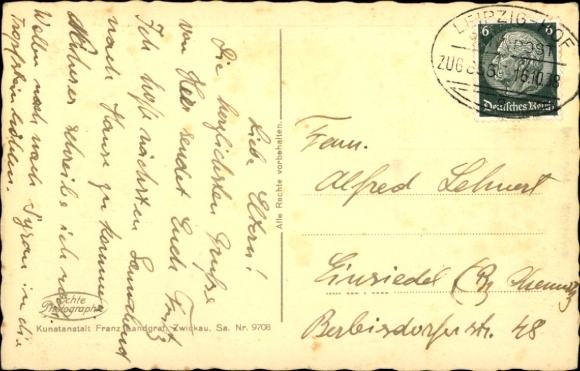 Liebe Eltern!
Die herzlichsten Grüße
von hier sendet Euch Fritz
Ich hoffe nächsten Sonnabend
nach Hause zu kommen.
schreibe ich noch
Wollen noch nach Syrau in die
Tropfsteinhöhlen.
Echte
Photographie
Kunstanstalt Franz Landgraf, Zwickau, Sa. Nr. 9708
Alle Rechte vorbehalten.
LEIPZIG-HOF
POST
ZUG
16.10.38
6 6
Deutsches Reich
Fam.
Alfred Lehnert
Einsiedel (Bz Chemnitz
Berbisdorferstr. 48